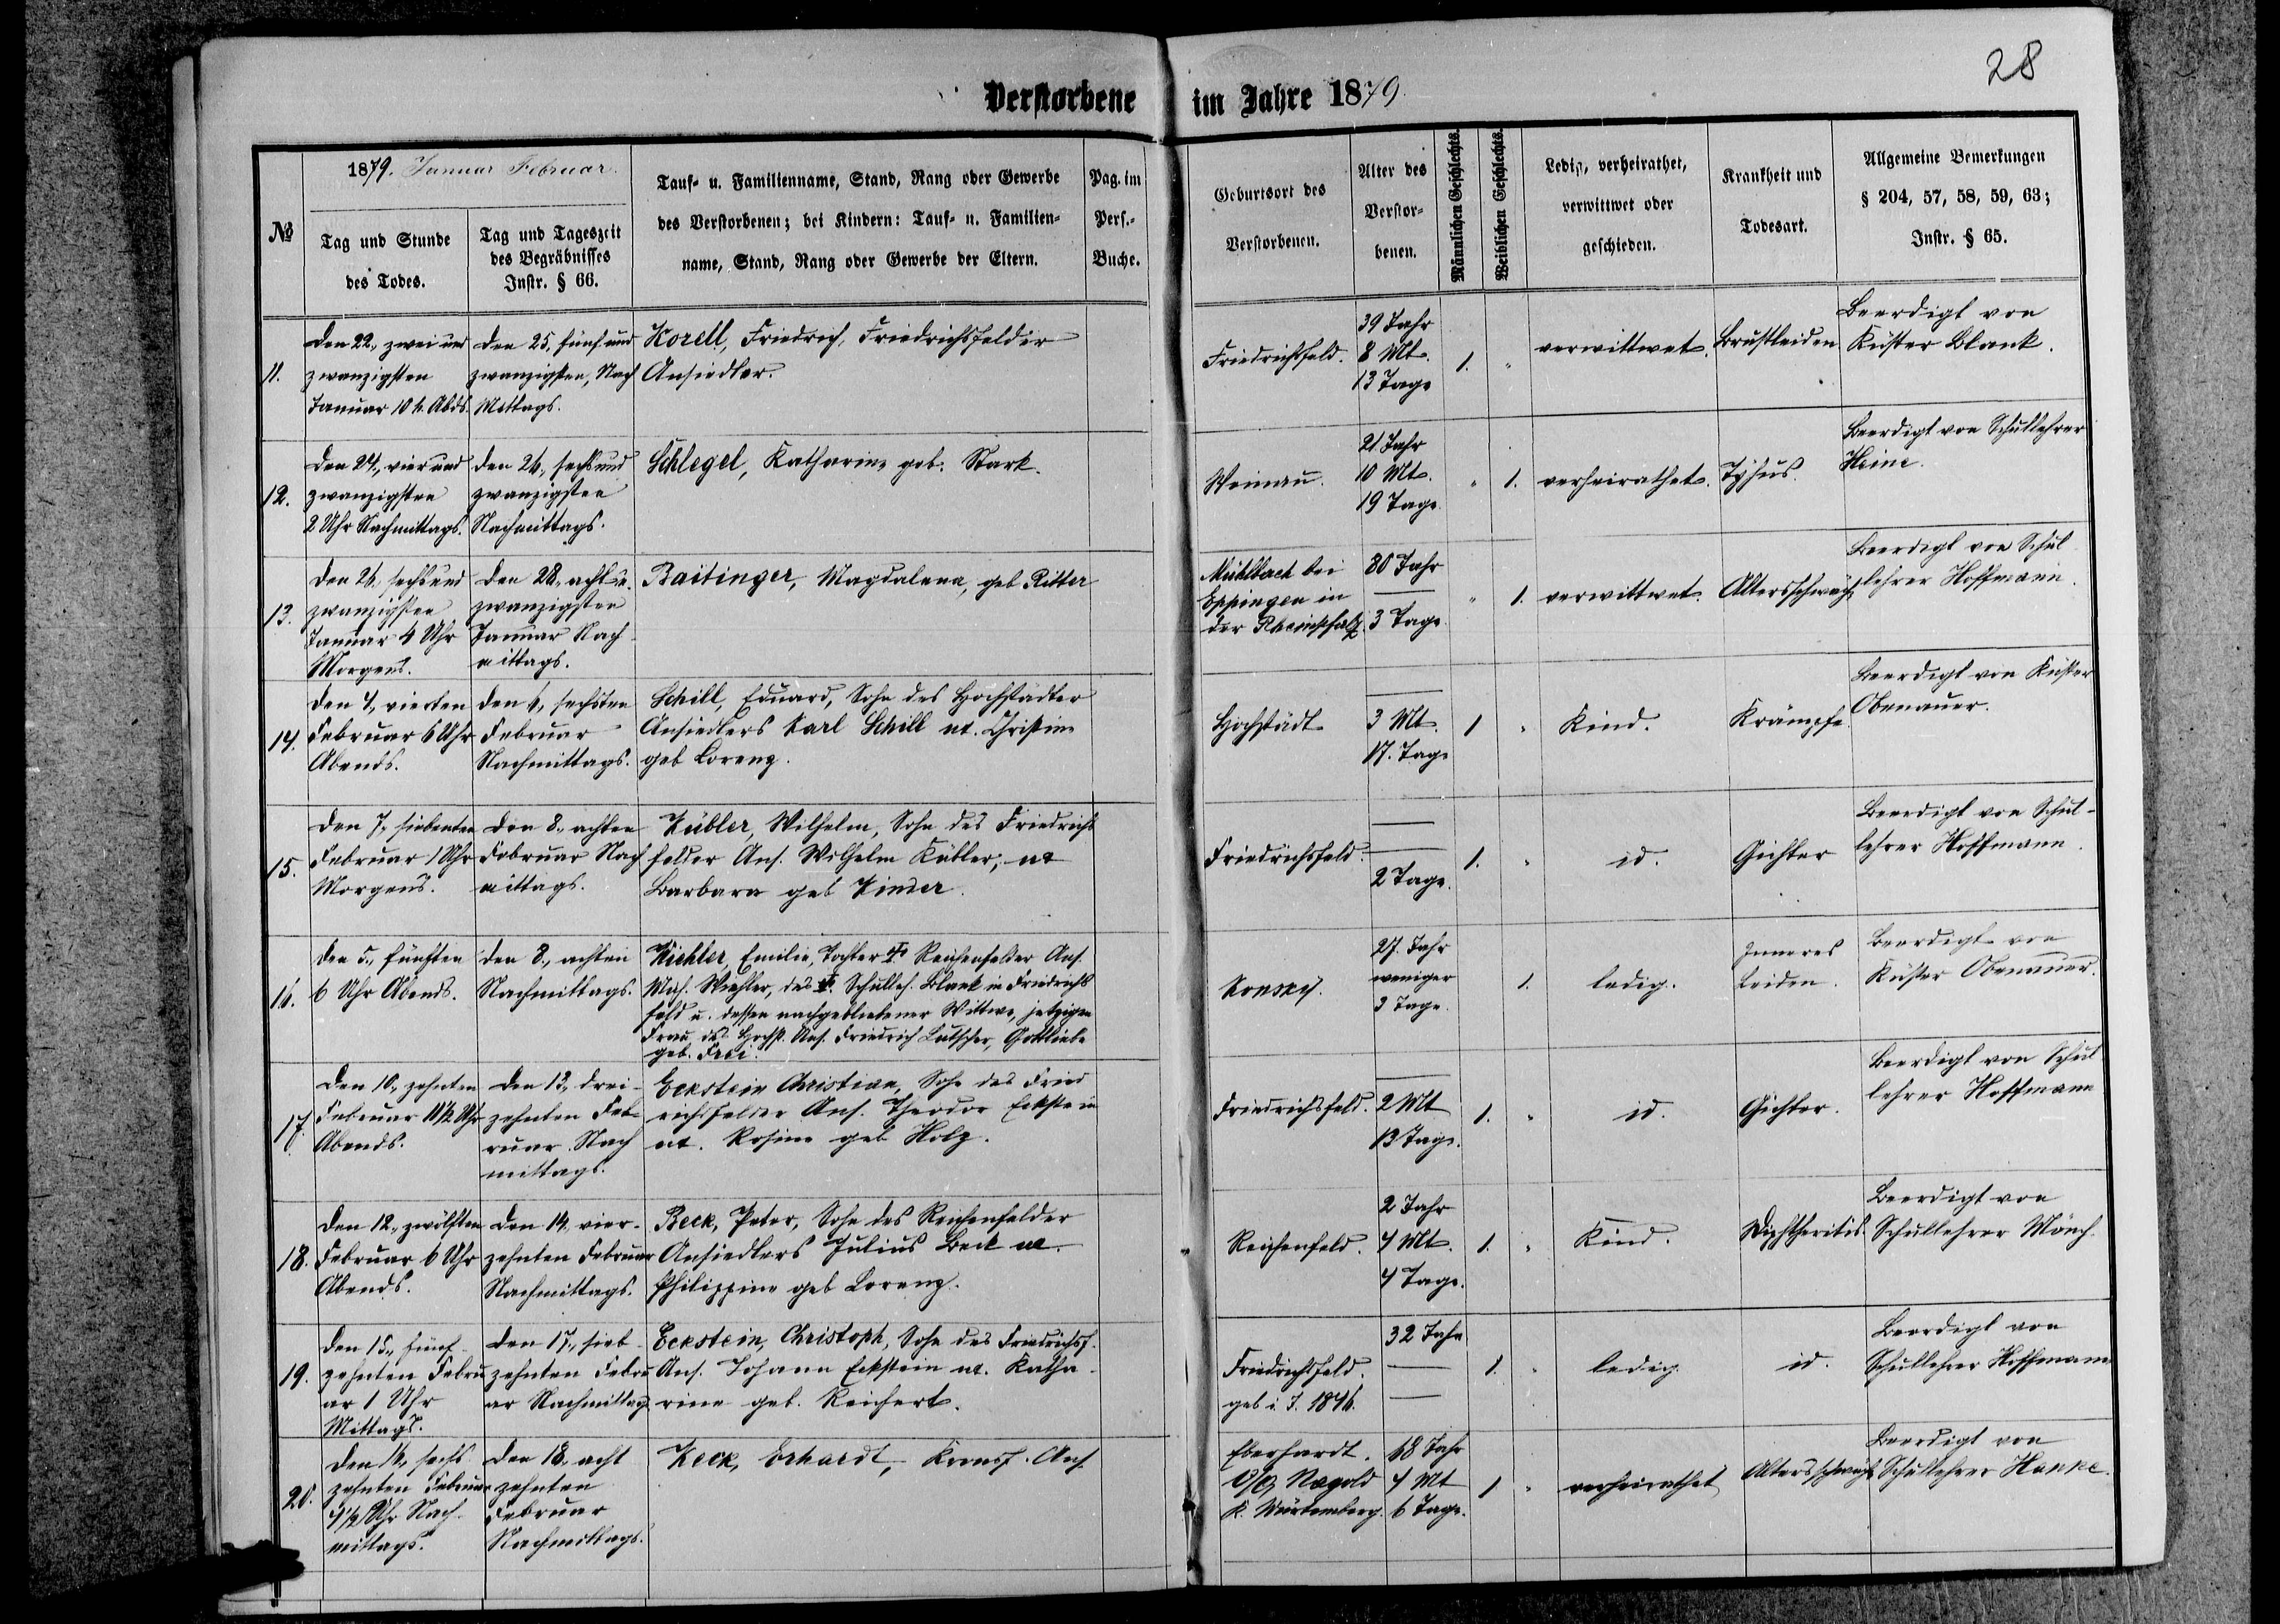 28
Verstorbene im Jahre 1879.
№
1879. Januar Februar.
Tag und Stunde
des Todes.
Tag und Tageszeit
des Begräbnisses
Instr. § 66.
Tauf- u. Familienname, Stand, Rang oder Gewerbe
des Verstorbenen; bei Kindern: Tauf- u. Familien-
name, Stand, Rang oder Gewerbe der Eltern.
Pag. im
Pers.-
Buche.
Geburtsort des
Verstorbenen.
Alter des
Verstor-
benen.
Männlichen Geschlechts.
Weiblichen Geschlechts.
Ledig, verheirathet,
verwittwet oder
geschieden.
Krankheit und
Todesart.
Allgemeine Bemerkungen
§ 204, 57, 58, 59, 63;
Instr. § 65.
11.
Den 22., zwei und
zwanzigsten
Januar 10 h. Abds.
Den 25, fünf und
zwanzigsten, Nach
Mittags.
Korell, Friedrich, Friedrichsfelder
Ansiedler.
Friedrichsfeld.
39 Jahr
8 Mt.
13 Tage
1.
verwittwet.
Brustleiden
Beerdigt von
Küster Blank.
12.
Den 24., vier und
zwanzigsten
2 Uhr Nachmittags.
Den 26, sechs und
zwanzigsten
Nachmittags.
Schlegel, Katharine geb. Stark.
Weinau.
21 Jahr
10 Mt.
19 Tage
1.
verheirathet.
Tyfus.
Beerdigt von Schullehrer
Heine.
13.
Den 26, sechs und
zwanzigsten
Januar 4 Uhr
Morgens.
Den 28, acht u.
zwanzigsten
Januar Nach
mittags.
Baitinger, Magdalena, geb Ritter
Mühlbach bei
Eppingen in
der Rheinpfalz.
80 Jahr
3 Tage
1.
verwittwet.
Altersschwäch
Beerdigt von Schul
lehrer Hoffmann.
14.
Den 4, vierten
Februar 6 Uhr
Abends.
Den 6, sechsten
Februar
Nachmittags.
Schill, Eduard, Sohn des Hochstädter
Ansiedlers Karl Schill et. Christine
geb Lorenz.
Hochstädt
3 Mt.
17. Tage
1
Kind.
Krämpfe.
Beerdigt von Küster
Obenauer.
15.
Den 7, siebenten
Februar 1 Uhr
Morgens.
Den 8., achten
Februar Nach
mittags.
Kübler, Wilhelm, Sohn des Friedrichs
felder Ans. Wilhelm Kübler, et
Barbara geb Kinder.
Friedrichsfeld.
2 Tage.
1.
id.
Gichter
Beerdigt von Schul-
lehrer Hoffmann.
16.
Den 5., fünften
6 Uhr Abends.
Den 8., achten
Nachmittags.
Kiehler, Emilie, Tochter Reichenfelder Ans.
des Schulleh. Blank in Friedrichs
feld u. dessen nachgebliebener Wittwe, jetzigen
Frau des Hochst. Ans. Friedrich Lutscher, Gottliebe
geb. Frei.
Konsky.
27. Jahr
weniger
3 Tage.
1.
ledig.
Inneres
Leiden.
Beerdigt von
Küster Obenauer.
17.
Den 10., zehnten
Februar 11 1/2 Uhr
Abends.
Den 13, drei-
zehnten Feb-
ruar Nach
mittags.
Eckstein Christian, Sohn des Fried
richsfelder Ans. Theodor Eckstein
et. Rosine geb Holz.
Friedrichsfeld.
2 Mt
13 Tage.
1.
id.
Gichter.
Beerdigt von Schul
lehrer Hoffmann
18.
Den 12., zwölften
Februar 6 Uhr
Abends.
Den 14, vier-
zehnten Februar
Nachmittags.
Beck, Peter, Sohn des Reichenfelder
Ansiedlers Julius Beck et.
Philippine geb Lorenz.
Reichenfeld.
2 Jahr
4 Mt.
4 Tage.
1.
Kind.
Diphtheritis.
Beerdigt von
Schullehrer Mönch
19.
Den 15., fünf
zehnten Febru
ar 1 Uhr
Mittags.
Den 17., sieb-
zehnten Febru
ar Nachmittag
Eckstein, Christoph, Sohn des Friedrichsf.
Ans. Johann Eckstein et. Katha-
rine geb. Reichert.
Friedrichsfeld.
geb i. J. 1846.
32 Jahr
1.
ledig.
id.
Beerdigt von
Schullehrer Hoffmann
20.
Den 16, sechs
zehnten Februar
4 1/2 Uhr Nach-
mittags.
Den 18, acht
zehnten
Februar
Nachmittags.
Keck, Erhardt, Kronsf. Ans.
Eberhardt.
O/A Nagold
K. Würtemberg.
68 Jahr
4 Mt
6 Tage.
1
verheirathet
Altersschwäche
Beerdigt von
Schullehrer Hanke.